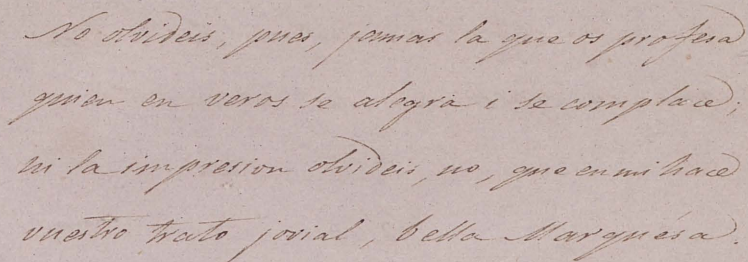 No olvideis, pues, jamas la que os profesa
quien en veros se alegra i se complace;
ni la impresion olvideis, no, que en mi hace
vuestro trato jovial, bella Marquésa.